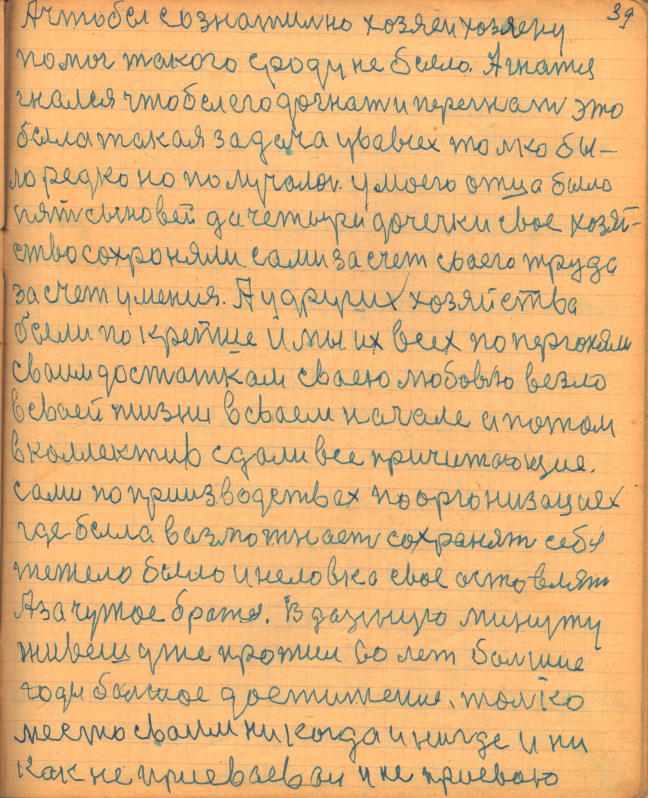 39
А чтобы сознатилно хозяеи хозяену
помоч такого сроду не было. А гнатце
гнался чтобы его догнат и перегнат это
была такая задача у вавсех толко бы-
ло редко но получалос. у моего отца было
пят сыновей да четыри дочечки свое хозяй-
ство сохроняли сами за счет сваего труда
за счет умения. А у других хозяйства
были по крепше и мы их всех по пергоняли
сваим достатком сваею любовю везло
в сваей жизни в сваем начале а потом
в коллектив сдали все причитающие.
сами по приизводствах по организациех
где была вазможнаст сохранят себя
тежело было и неловка свое оставлят
А за чужое братя. В дануую минуту
живеш уже прожил 60 лет болшие
годы болшое достижение. толко
место сваим никогда и нигде и ни
как не приеваевал и не приеваю